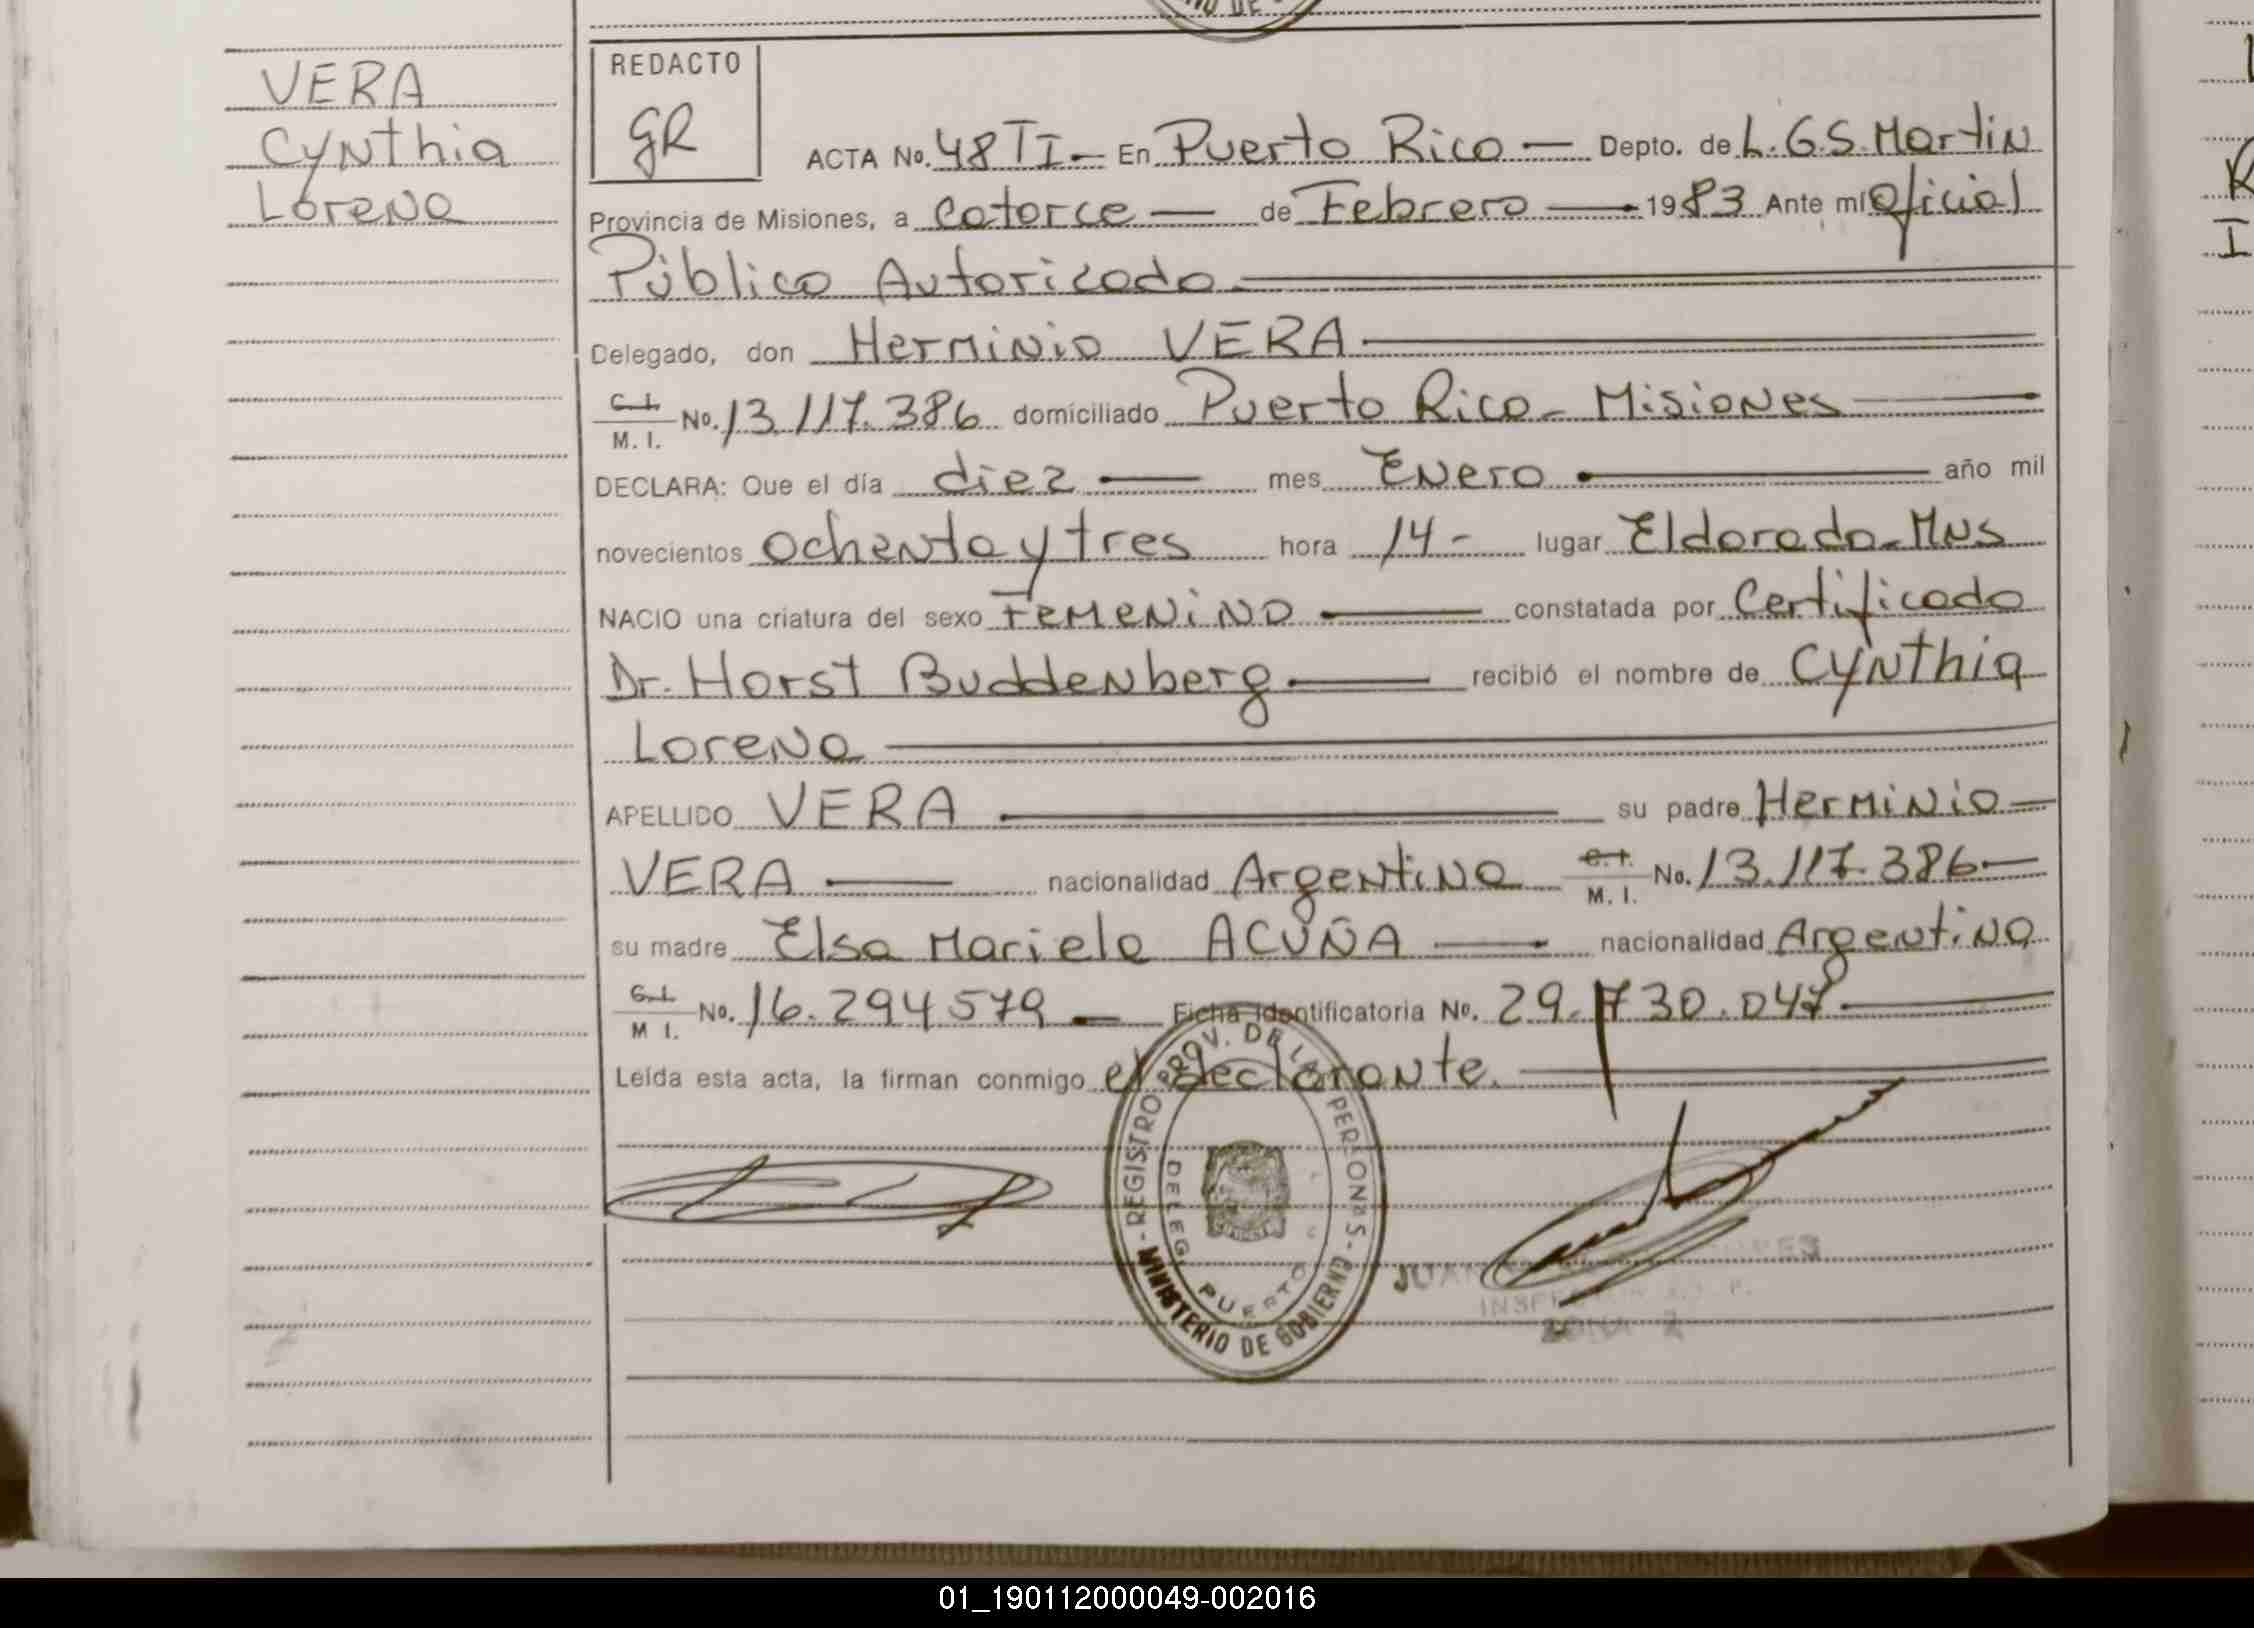 NO DE
VERA
Cynthia
Lorena
REDACTO
GR
ACTA No. 48 TI - En Puerto Rico — Depto. de L. G. S. Martin
Provincia de Misiones, a catorce — de Febrero — 1983 Ante mí Oficial
Público Autorizado
Delegado, don Herminio VERA
C. I. M. I. No. 13.117.386 domiciliado Puerto Rico - Misiones
DECLARA: Que el día diez — mes Enero — año mil
novecientos ochenta y tres hora 14 - lugar Eldorado - Mns
NACIO una criatura del sexo Femenino — constatada por Certificado
Dr. Horst Buddenberg — recibió el nombre de Cynthia
Lorena
APELLIDO VERA — su padre Herminio —
VERA — nacionalidad Argentina C. I. M. I. No. 13.117.386 —
su madre Elsa Mariela ACUÑA — nacionalidad Argentina
C. I. M I. No. 16.294579 — Ficha Identificatoria No. 29.730.047 —
Leída esta acta, la firman conmigo el declarante.
- REGISTRO PROV. DE LAS PERSONAS - MINISTERIO DE GOBIERNO
DELEG. PUERTO
JUAN
ZONA 2
01_190112000049-002016